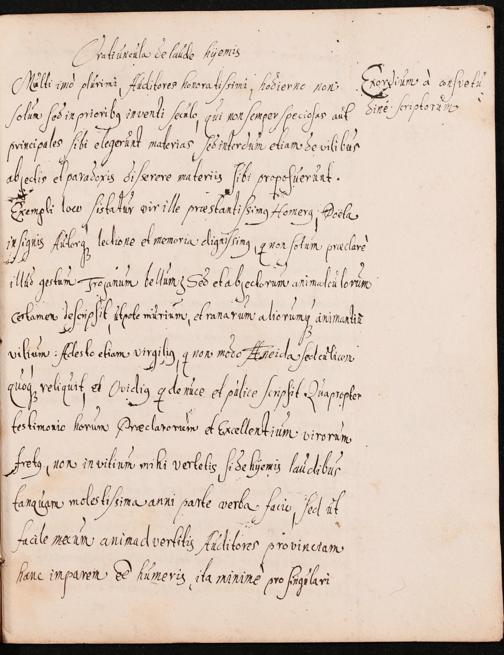 Oratiuncula de laude hÿemis
Multi imo plurimi, Auditores honoratissimi, hodierno non
solum sed in priorib9 inventi seculo, qui non semper speciosas aut
principales sibi elegerunt materias sed interdum etiam de vilibus
abjectis et paradoxis disserere materiis sibi proposuerunt.
Exempli loco sistatur vir ille præstantissim9 Homer9, Poëta
insignis Autorq3 lectione et memoria dignissim9, q non solum præclarè
illud gestum Trojanum bellum, Sed et abjectorum animalculorum
certamen descripsit, utpote murium, et ranarum aliorumq3 animantiu
vilium: Adesto etiam virgili9, q non modo Æneida sed culicem
quoq3 reliquit, et Ovidi9 q de nuce et pulice scripsit Quapropter
testimonio horum Præclarorum et Excellentium virorum
fret9, non in vitium mihi vertetis si de hÿemis laudibus
tanquam molestissima anni parte verba facio, sed ut
facile mecum animadvertitis Auditores provinciam
hanc imparem èe humeris, ita minimè pro singulari
Exordium à consvetu
dine scriptorum